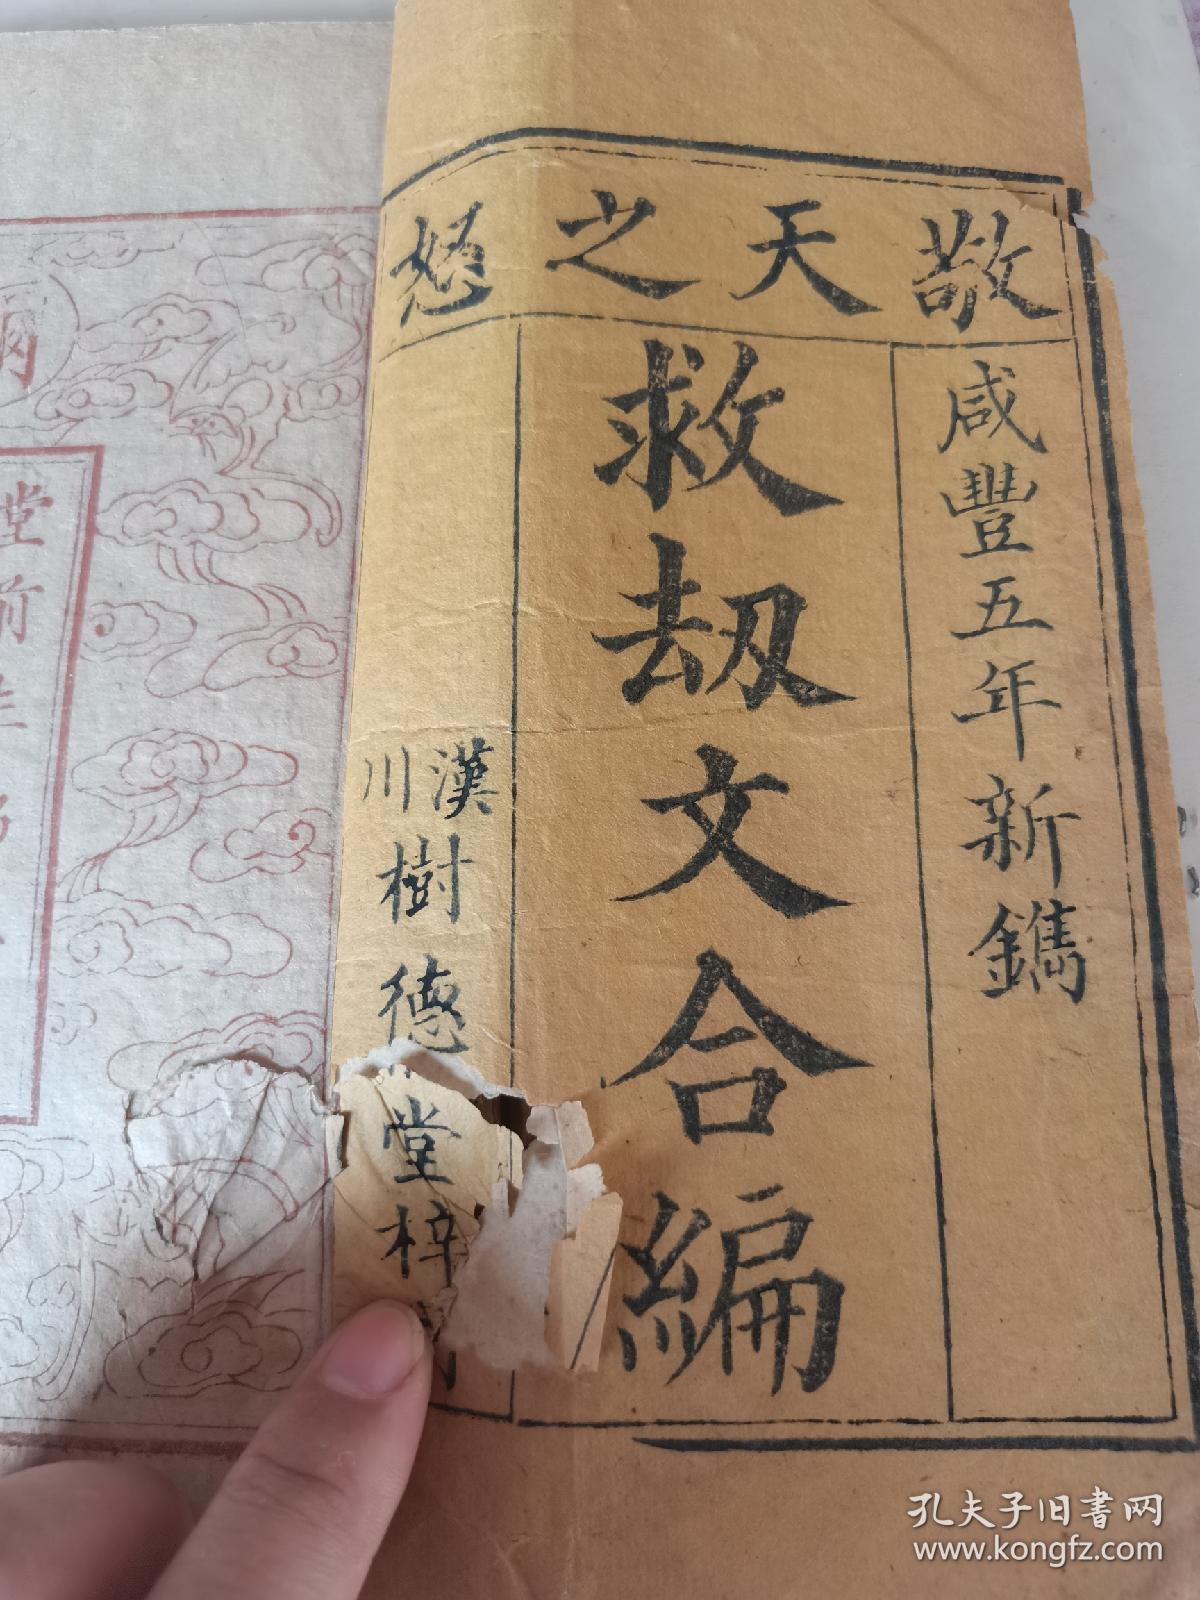 敬天之怒
咸豐五年新鐫
救刼文合編
漢川樹德堂梓
堂前
孔夫子旧书网
www.kongfz.com